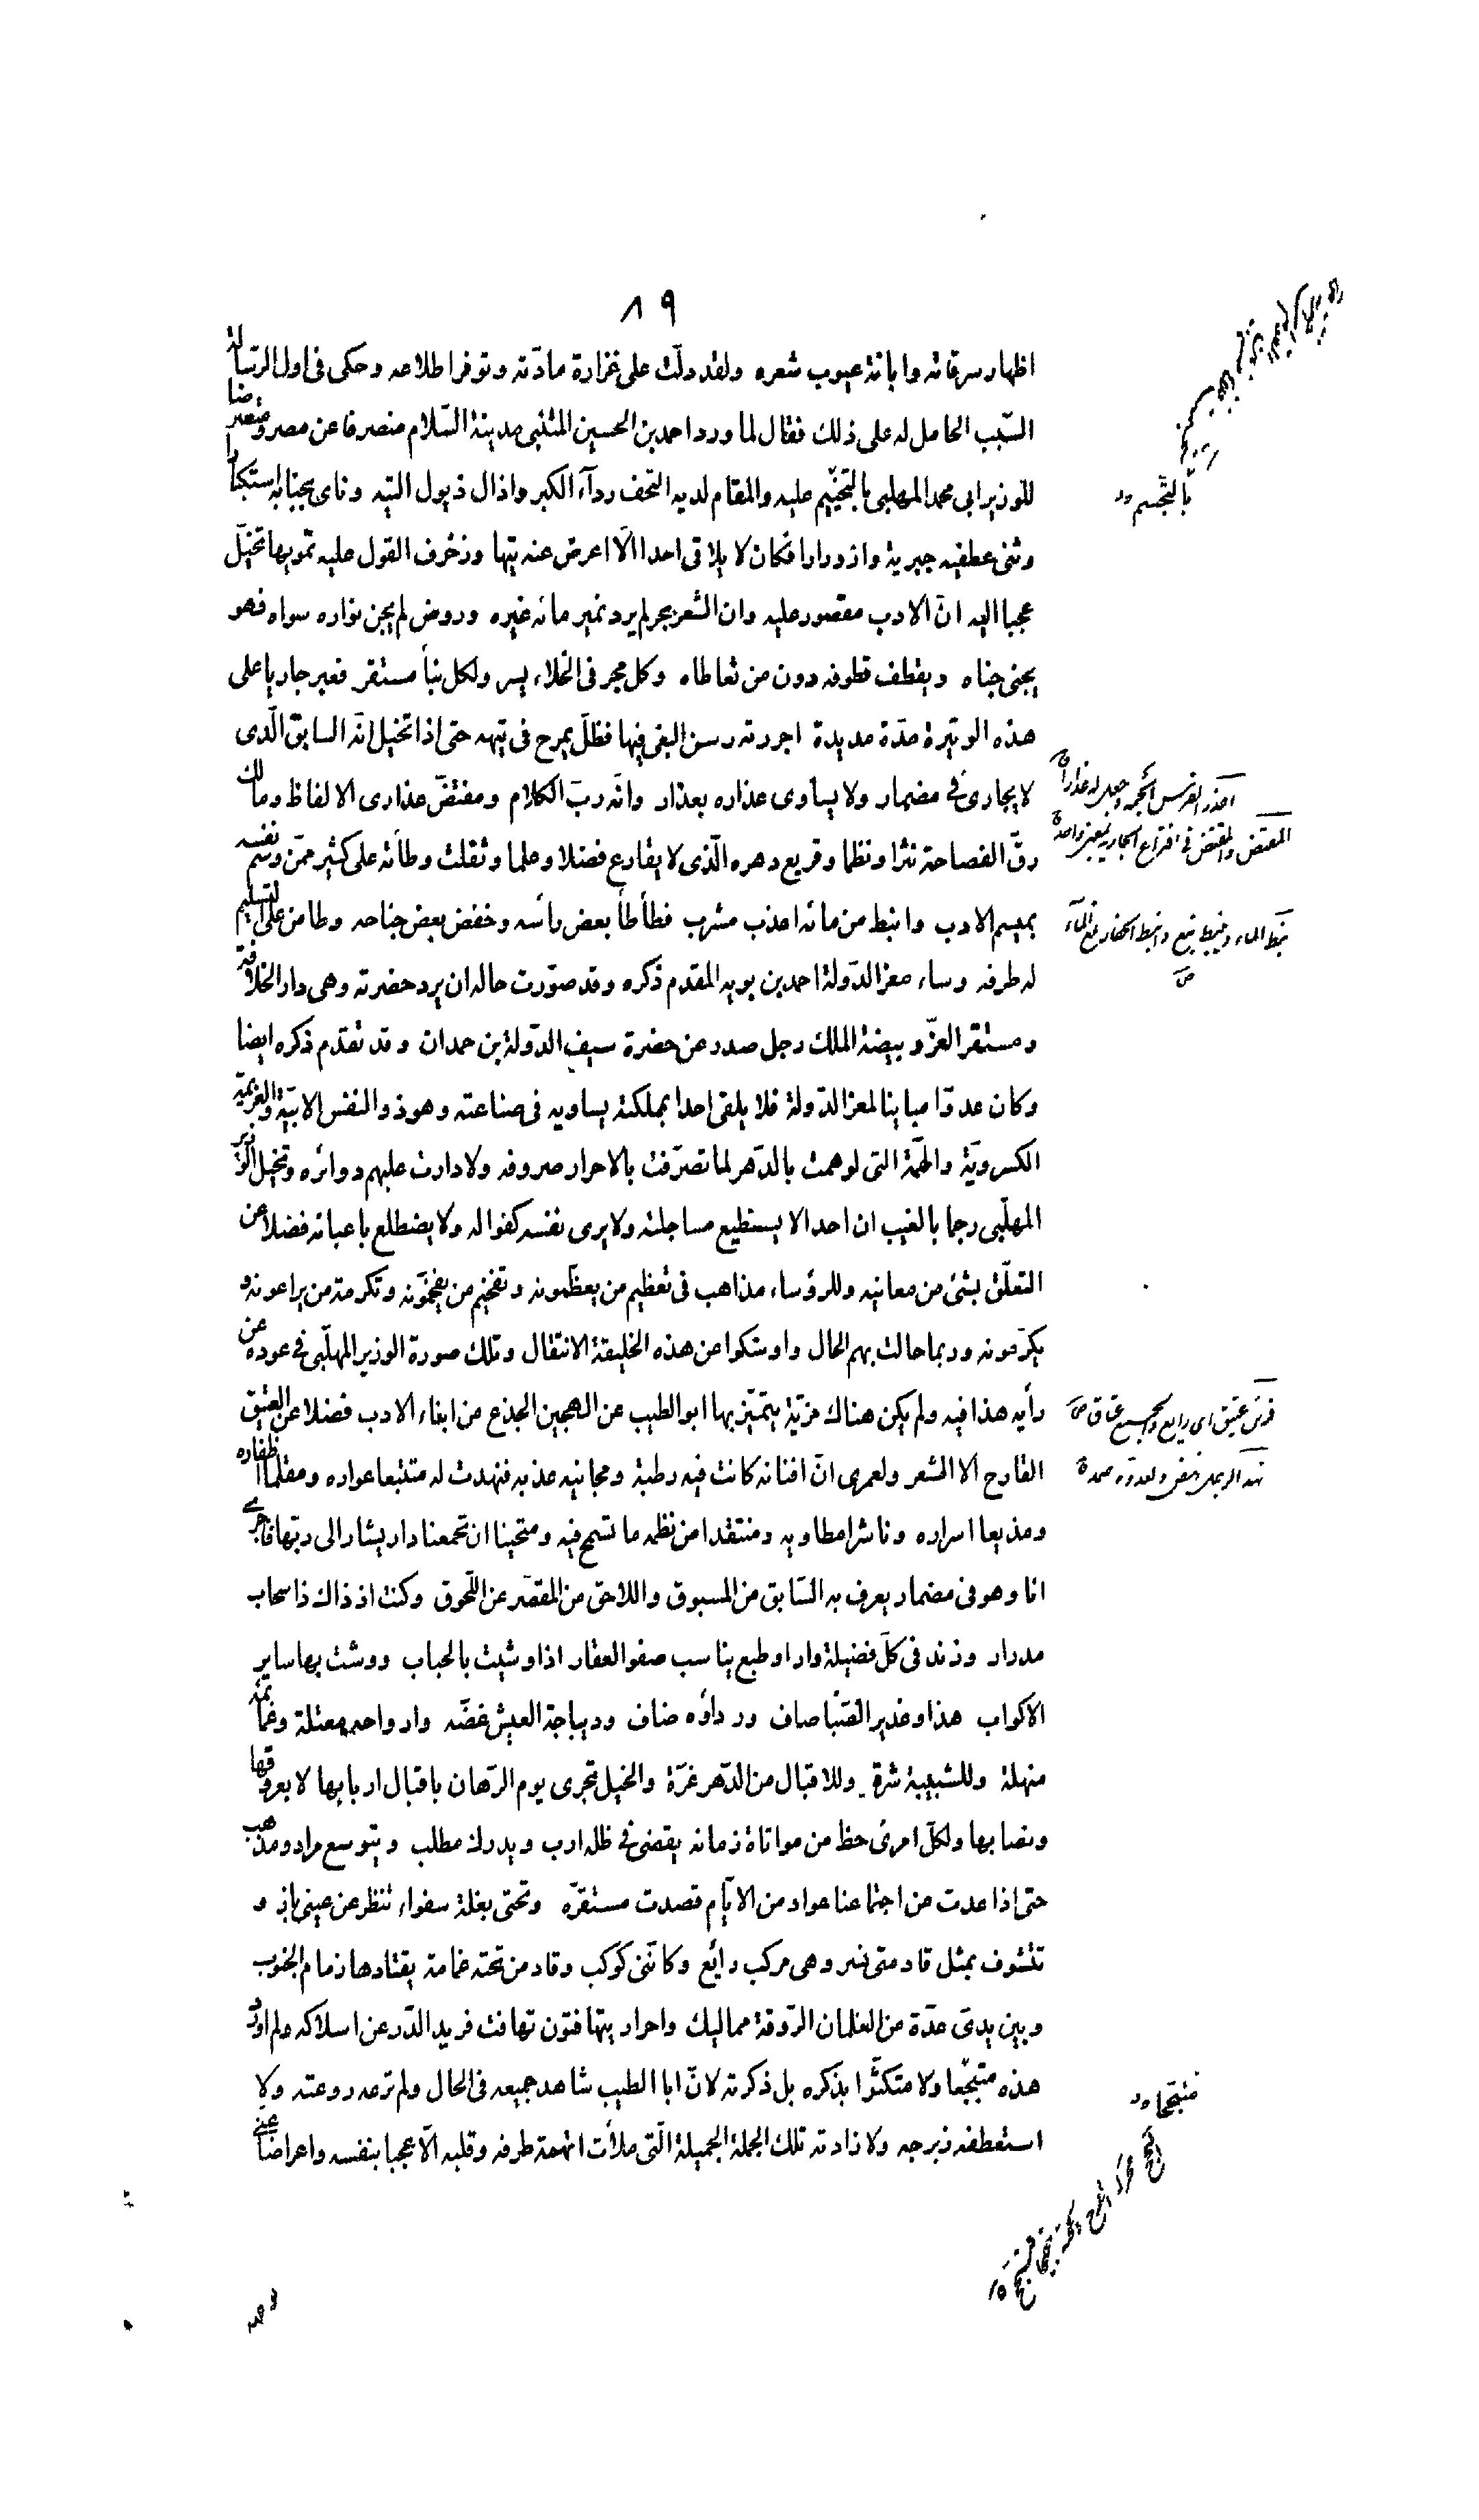 ٨٩
اظهار سرقاته وابانة عيوب شعره ولقد دلّت على غزارة مادّته وتوفر اطلاعه وحكى فى اول الرّسالة
السّبب الحامل له على ذلك فقال لما ورد احمد بن الحسين المتنبى مدينة السّلام منصرفا عن مصر ومتعرضا
للوزير ابى محمد المهلبى بالتخيّم عليه والمقام لديه التحف ردآء الكبر واذال ذيول التيه وناى بجنابه استكبارا
وثنى عطفيه جبرية وازورارا فكان لا يلاقى احدا الّا اعرض عنه تيها وزخرف القول عليه تمويها تخيّل
عجبا اليه انّ الادب مقصور عليه وان الشعر بحر لم يرد نمير مائه غيره وروض لم يجن نواره سواه فهو
يجنى جناه ويقطف قطوفه دون من تعاطاه وكل مجر فى الخلاء يسر ولكل نبأ مستقر فعبر جاريا على
هذه الوتيرة مدّة مديدة اجررته رسن البغى فيها فظلّ يمرح فى تيهه حتى اذا تخيل انّه السابق الّذى
لا يجارى فى مضمار ولا يساوى عذاره بعذار وانّه ربّ الكلام ومفتضّ عذارى الالفاظ ومالك
رقّ الفصاحة نثرا ونظما وقريع دهره الّذى لا يقارع فضلا وعلما وثقلت وطأته على كثير ممّن وسم نفسه
بميسم الادب وانبط من مائه اعذب مشرب فطأطأ بعض رأسه وخفض بعض جناحه وطامن على التسليم
له طرفه وساء معز الدّولة احمد بن بويه المقدم ذكره وقد صوّرت حاله ان يرد حضرته وهى دار الخلافة
ومستقر العزّ وبيضة الملك رجل صدر عن حضرة سيف الدّولة بن حمدان وقد تقدّم ذكره ايضا
وكان عدوّا مباينا لمعز الدّولة فلا يلقى احدا بمملكته يساويه فى صناعته وهو ذو النفس الابيّة والعزيمة
الكسرويّة والهمّة التى لو همت بالدّهر لما تصرّفت بالاحرار صروفه ولا دارت عليهم دوائره وتخيل الوزير
المهلّبى رجما بالغيب ان احدا لا يستطيع مساجلته ولا يرى نفسه كفوا له ولا يضطلع باعبائه فضلا عن
التعلّق بشئ من معانيه وللرؤساء مذاهب فى تعظيم من يعظّمونه وتفخيم من يفخمّونه وتكرمة من يراعونه و
يكرّمونه وربما حالت بهم الحال واوشكوا عن هذه الخليقة الانتقال وتلك صورة الوزير المهلّبى فى عوده عن
رأيه هذا فيه ولم يكن هناك مزيّة يتميّز بها ابو الطيب عن الهجين الجذع من ابناء الادب فضلا عن العتيق
القارح الا الشعر ولعمرى انّ افنانه كانت فيه رطبة ومجانيه عذبه فنهدت له متتبعا عواره ومقلما اظفاره
ومذيعا اسراره وناشرا مطاويه ومنتقدا من نظمه ما تسمح فيه ومتحينا ان تجمعنا دار يشار الى ربّها فاجرى
انا وهو فى مضمار يعرف به السّابق من المسبوق واللاحق من المقصّر عن اللّحوق وكنت اذ ذاك ذا سحاب
مدرار وزند فى كلّ فضيلة وار او طبع يناسب صفو العقار اذا وشيت بالحباب ووشت بها ساير
الاكواب هذا وغدير الصّبا صاف ورداؤه ضاف وديباجة العيش غضّه وارواحه معتلة وغمائمه
منهلة وللشبيبة شرة وللاقبال من الدّهر غرّة والخيل تجرى يوم الرّهان باقبال اربابها لا بعروقها
ونصابها ولكلّ امرئ حظ من مواتاة زمانه يقضى فى ظله ارب ويدرك مطلب ويتوسع مراد ومذهب
حتى اذا عدت عن اجتماعنا عواد من الايّام قصدت مستقرّه وتحتى بغلة سفواء تنظر عن عينى باز و
تتشوف بمثل قادمتى نسر وهى مركب رائع وكانّنى كوكب وقاد من تحته غمامة يقتادها زمام الجنوب
وبين يدىّ عدّة من الغلمان الرّوقة مماليك واحرار يتهافتون تهافت فريد الدّر عن اسلاكه ولم اورد
هذه متبجّحا ولا متكثّرا بذكره بل ذكرته لانّ ابا الطيب شاهد جميعه فى الحال ولم ترعه روعته ولا
استعطفه زبرجه ولا زادته تلك الجملة الجميلة الّتى ملأت انحة طرفه وقلبه الّا عجبا بنفسه واعراضا عنى
بالتجسم
اعذر الفرس الجمه وجعل له عذارا
المقتض والمفتض فى افتراع الجارية بمعنى واحد
نبط الماء ينبط نبع وانبط الحفار بلغ الماء
فرس عتيق اى رايع والجميع عتاق
نهد الرجل نهض ولعدوّه صمد
متبجحا